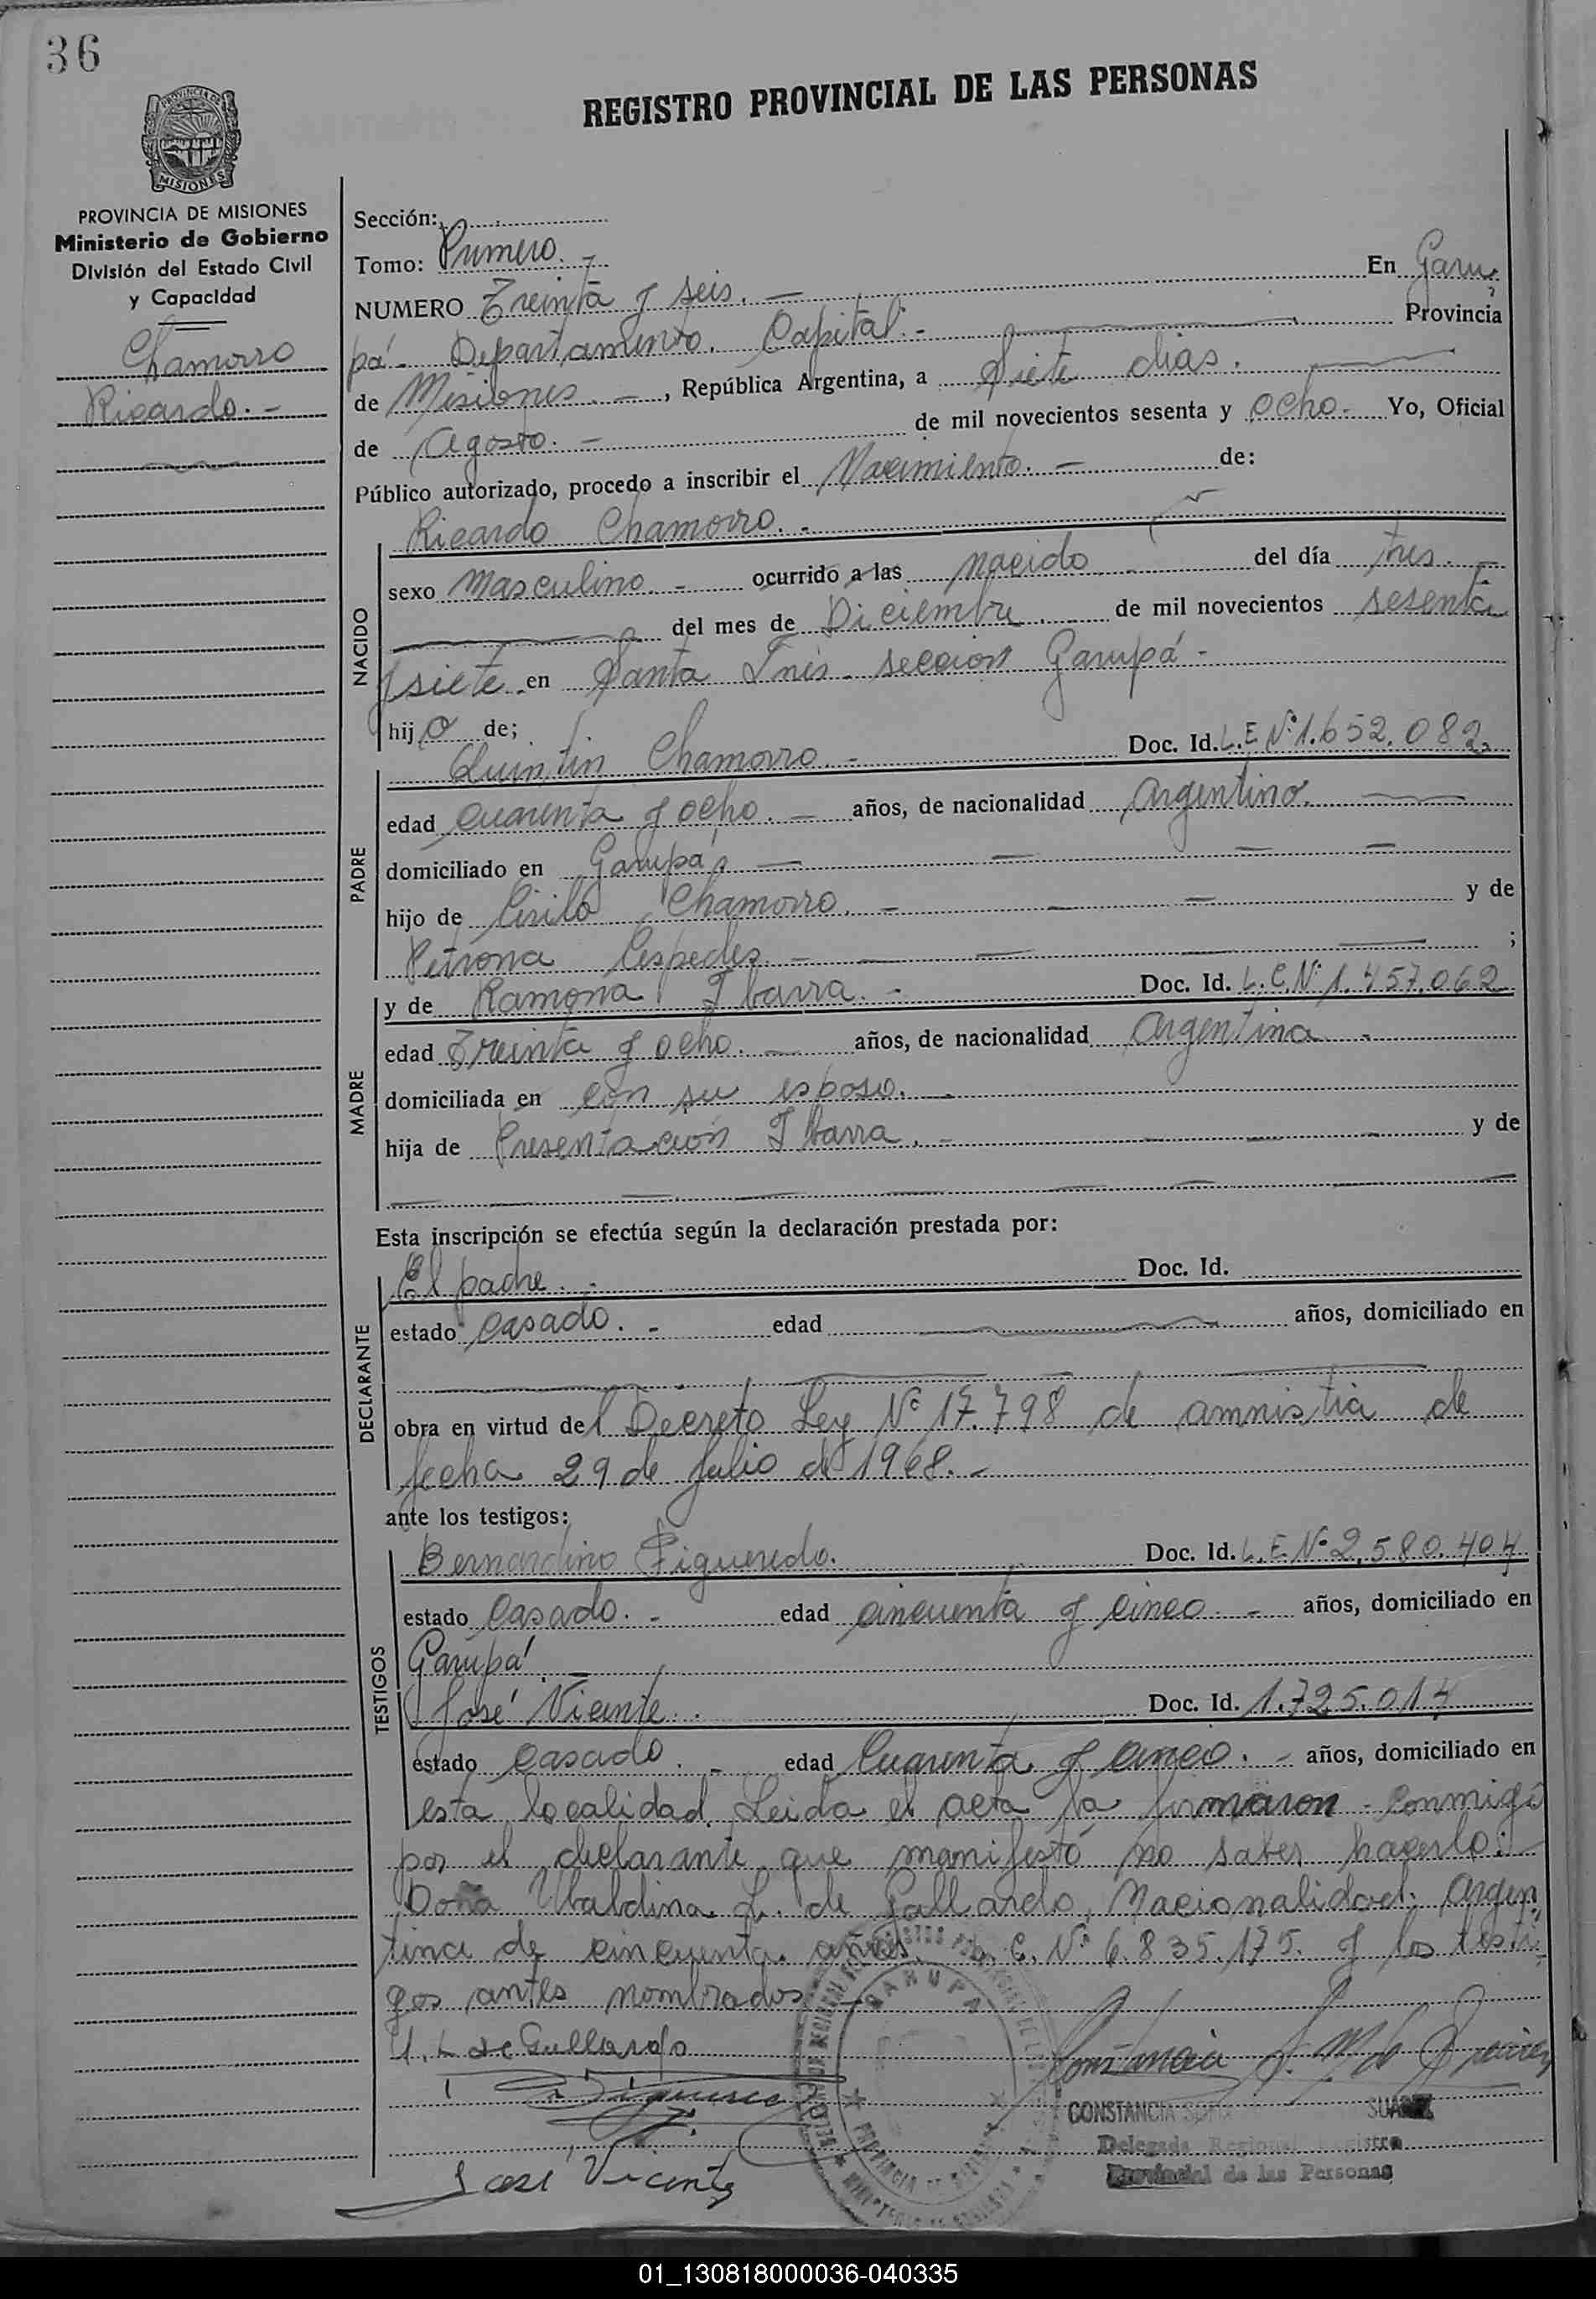 36
REGISTRO PROVINCIAL DE LAS PERSONAS
PROVINCIA DE
MISIONES
PROVINCIA DE MISIONES
Ministerio de Gobierno
División del Estado Civil
y Capacidad
Chamorro
Ricardo.-
Sección:
Tomo: Primero.-
NUMERO Treinta y seis.- En Garu
pá- Departamento. Capital.- Provincia
de Misiones.-, República Argentina, a Siete dias.
de Agosto.- de mil novecientos sesenta y ocho- Yo, Oficial
Público autorizado, procedo a inscribir el Nacimiento.- de:
NACIDO
Ricardo Chamorro.-
sexo Masculino.- ocurrido a las nacido del día tres.-
del mes de Diciembre. de mil novecientos sesenta
y siete en Santa Inés. seccion Garupá-
hijo de;
PADRE
Quintin Chamorro.- Doc. Id. L.E Nº 1.652.082
edad cuarenta y ocho.- años, de nacionalidad Argentino.
domiciliado en Garupá,
hijo de Cirilo Chamorro.- y de
Petrona Cespedes- ;
MADRE
y de Ramona Ibarra.- Doc. Id. L.C.Nº 1.457.062
edad Treinta y ocho.- años, de nacionalidad Argentina-
domiciliada en con su esposo.-
hija de Presentación Ibarra.- y de
Esta inscripción se efectúa según la declaración prestada por:
DECLARANTE
El padre.- Doc. Id.
estado casado.- edad años, domiciliado en
obra en virtud del Decreto Ley Nº 17.798 de amnistia de
fecha 29 de Julio de 1968.-
ante los testigos:
TESTIGOS
Bernardino Figueredo. Doc. Id. L.E.Nº 2.580.404
estado casado.- edad cincuenta y cinco.- años, domiciliado en
Garupá.-
José Vicente. Doc. Id. 1.725.014
estado casado.- edad Cuarenta y cinco.- años, domiciliado en
esta localidad. Leida el acta la firmaron conmigo
por el declarante que manifestó no saber hacerlo:
Doña Ubaldina L. de Gallardo, Nacionalidad: Argen
tina de cincuenta años. L.C.Nº 6.835.175. y los testi
gos antes nombrados
U. L de Gallardo
GARUPA
José Vicente
CONSTANCIA SUAREZ
Delegada Regional Registro
Provincial de las Personas
01_130818000036-040335